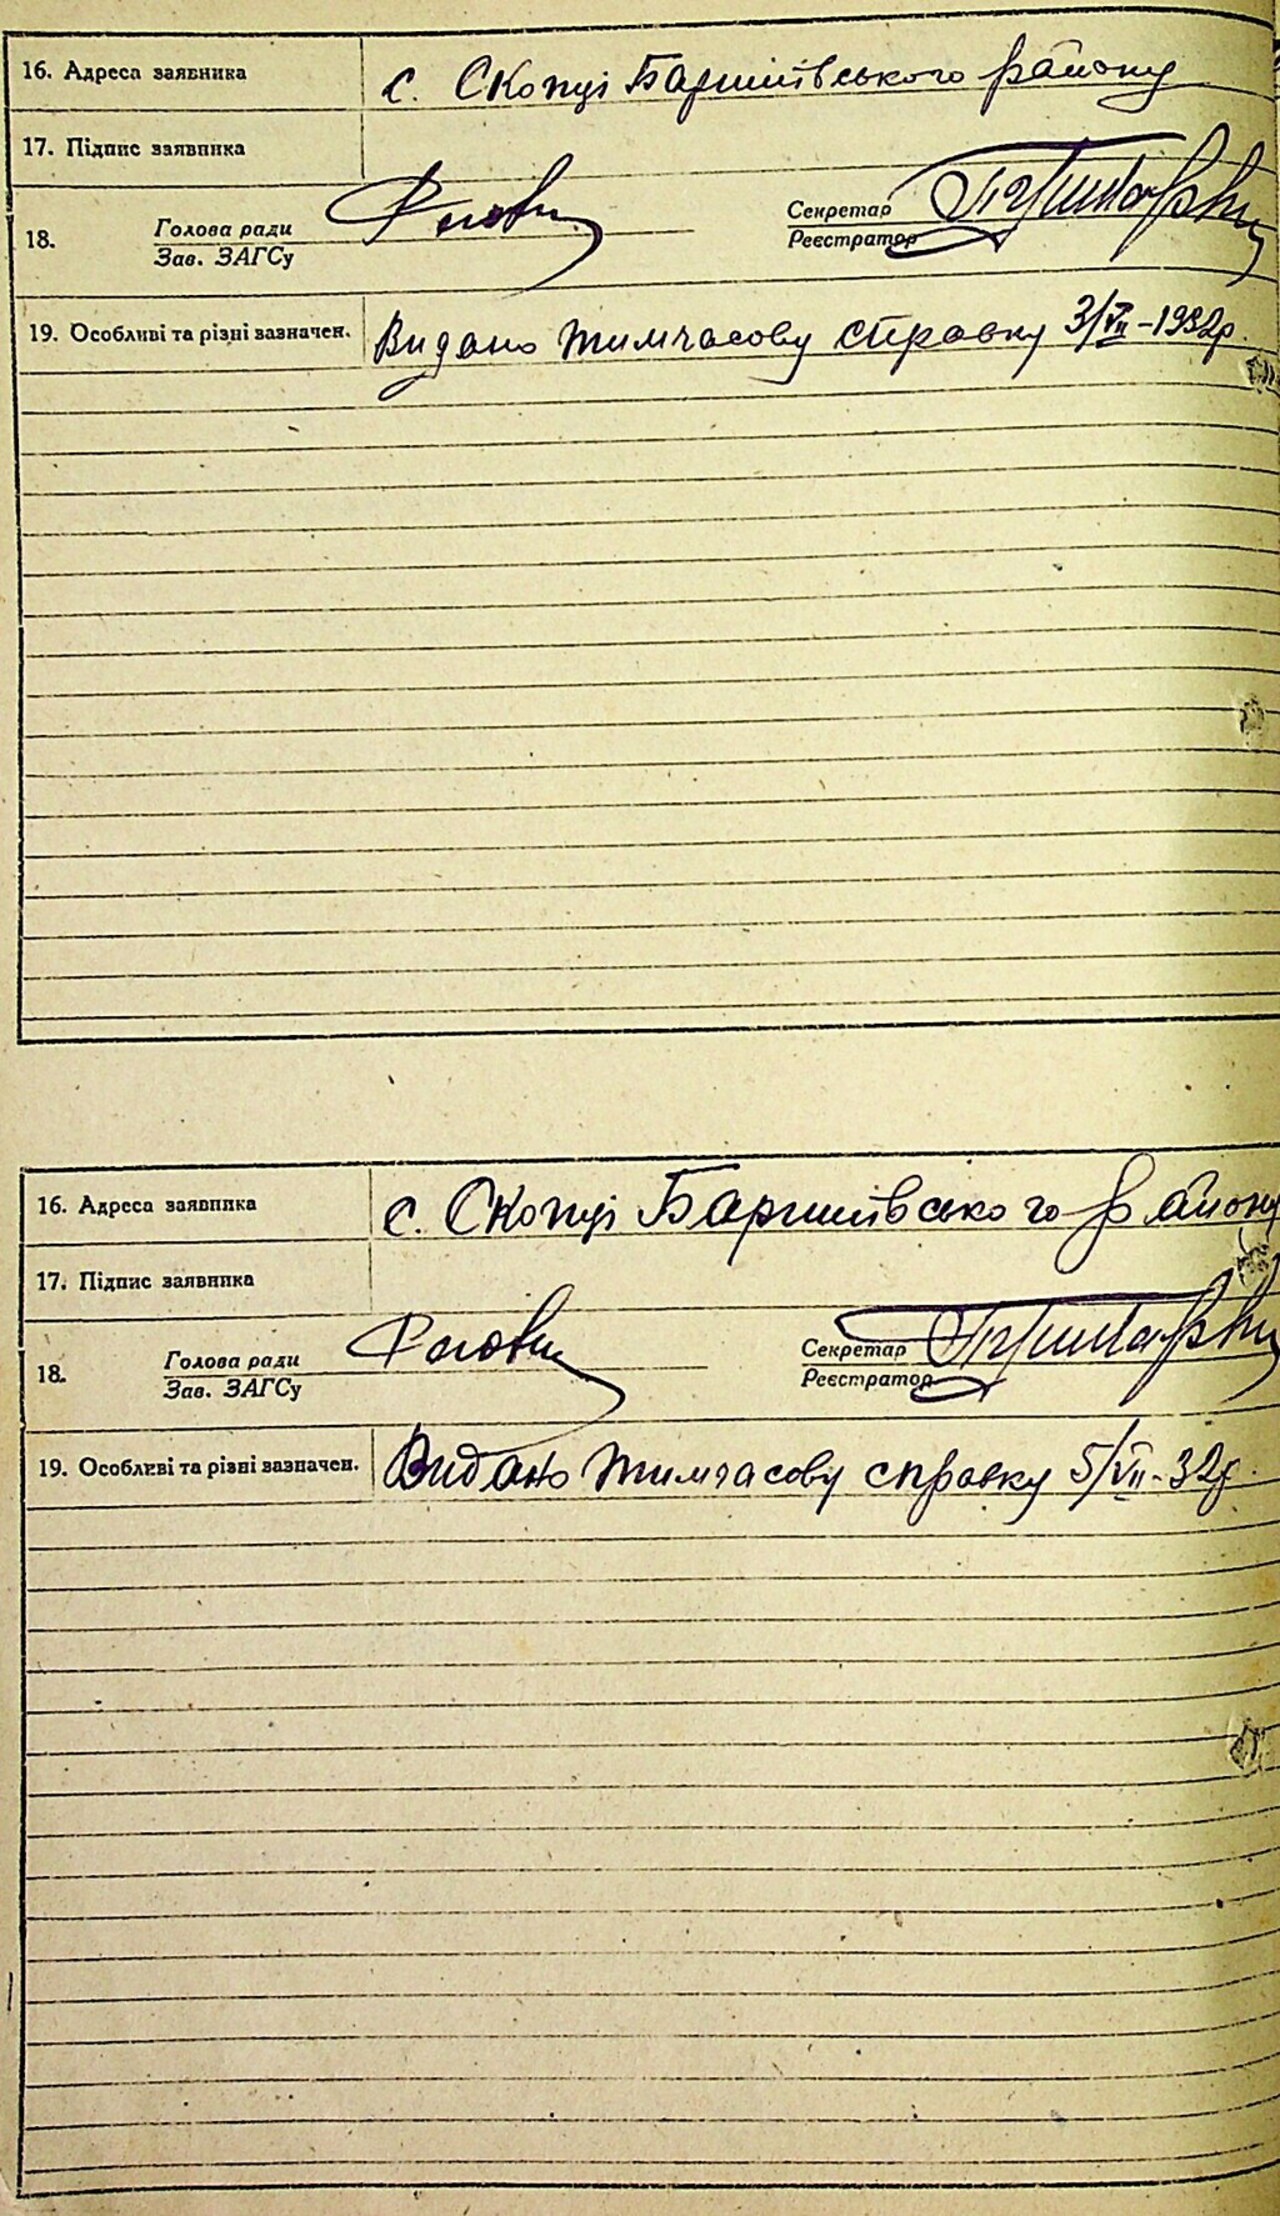 16. Адреса заявника с. Скопці Баришівського району
17. Підпис заявника
18. Голова ради Секретар
Зав. ЗАГСу Реєстратор
19. Особливі та різні зазначен. Видано тимчасову справку 3/VII-1932р.
16. Адреса заявника с. Скопці Баришівського району
17. Підпис заявника
18. Голова ради Секретар
Зав. ЗАГСу Реєстратор
19. Особливі та різні зазначен. Видано тимчасову справку 5/VII-32р.